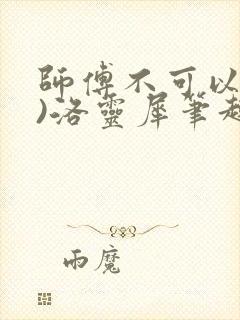 師傅不可以
)洛靈犀筆趣
雨魔